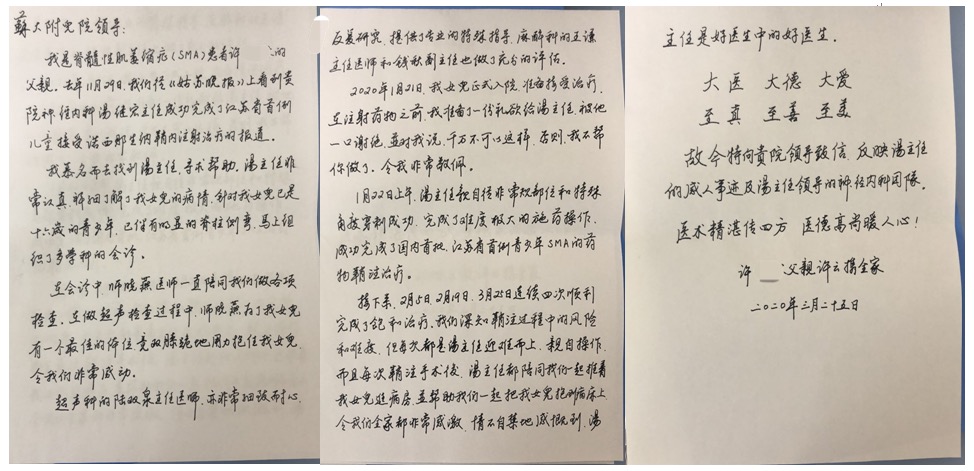 蘇大附兒院領导:
我是脊髓性肌萎缩症(SMA)患者许 的
父親。去年11月29日,我们從《姑苏晚报》上看到贵
院神经内科湯继宏主任成功完成了江苏省首例
儿童接受诺西那生纳鞘内注射治疗的报道。
我慕名而去找到湯主任,寻求帮助。湯主任非
常认真、详细了解了我女兒的病情,針对我女兒已是
十六歲的青少年,已伴有明显的脊柱侧弯,馬上组
织了多學科的会诊。
在会诊中,师晓燕医师一直陪同我们做各项
检查。在做超声检查过程中,师晓燕为了我女兒
有一个最佳的体位,竟双膝跪地用力抱住我女兒,
令我们非常感动。
超声科的陆双泉主任医师,亦非常细致耐心,
反复研究,提供了专业的特殊指导。麻醉科的王谦
主任医师和钱秋副主任也做了充分的评估。
2020年1月21日,我女兒正式入院,准备接受治疗。
在注射药物之前,我准备了一份礼欲给湯主任,被他
一口谢绝,並对我说,千万不可以这样,否则,我不帮
你做了。令我非常敬佩。
1月22日上午,湯主任親自從非常规部位和特殊
角度穿刺成功,完成了难度极大的施药操作。
成功完成了国内首批、江苏省首例青少年SMA的药
物鞘注治疗。
接下来,2月5日、2月19日、3月25日连续四次顺利
完成了饱和治疗。我们深知鞘注过程中的风险
和难度,但每次都是湯主任迎难而上,親自操作,
而且每次鞘注手术後,湯主任都陪同我们一起推着
我女兒進病房,並帮助我们一起把我女兒抱到病床上,
令我们全家都非常感激,情不自禁地感慨到,湯
主任是好医生中的好医生。
大医 大德 大爱
至真 至善 至美
故今特向貴院領导致信,反映湯主任
的感人事迹及湯主任領导的神经内科团隊。
医术精湛传四方 医德高尚暖人心!
许 父親许云揚全家
二〇二〇年三月二十五日